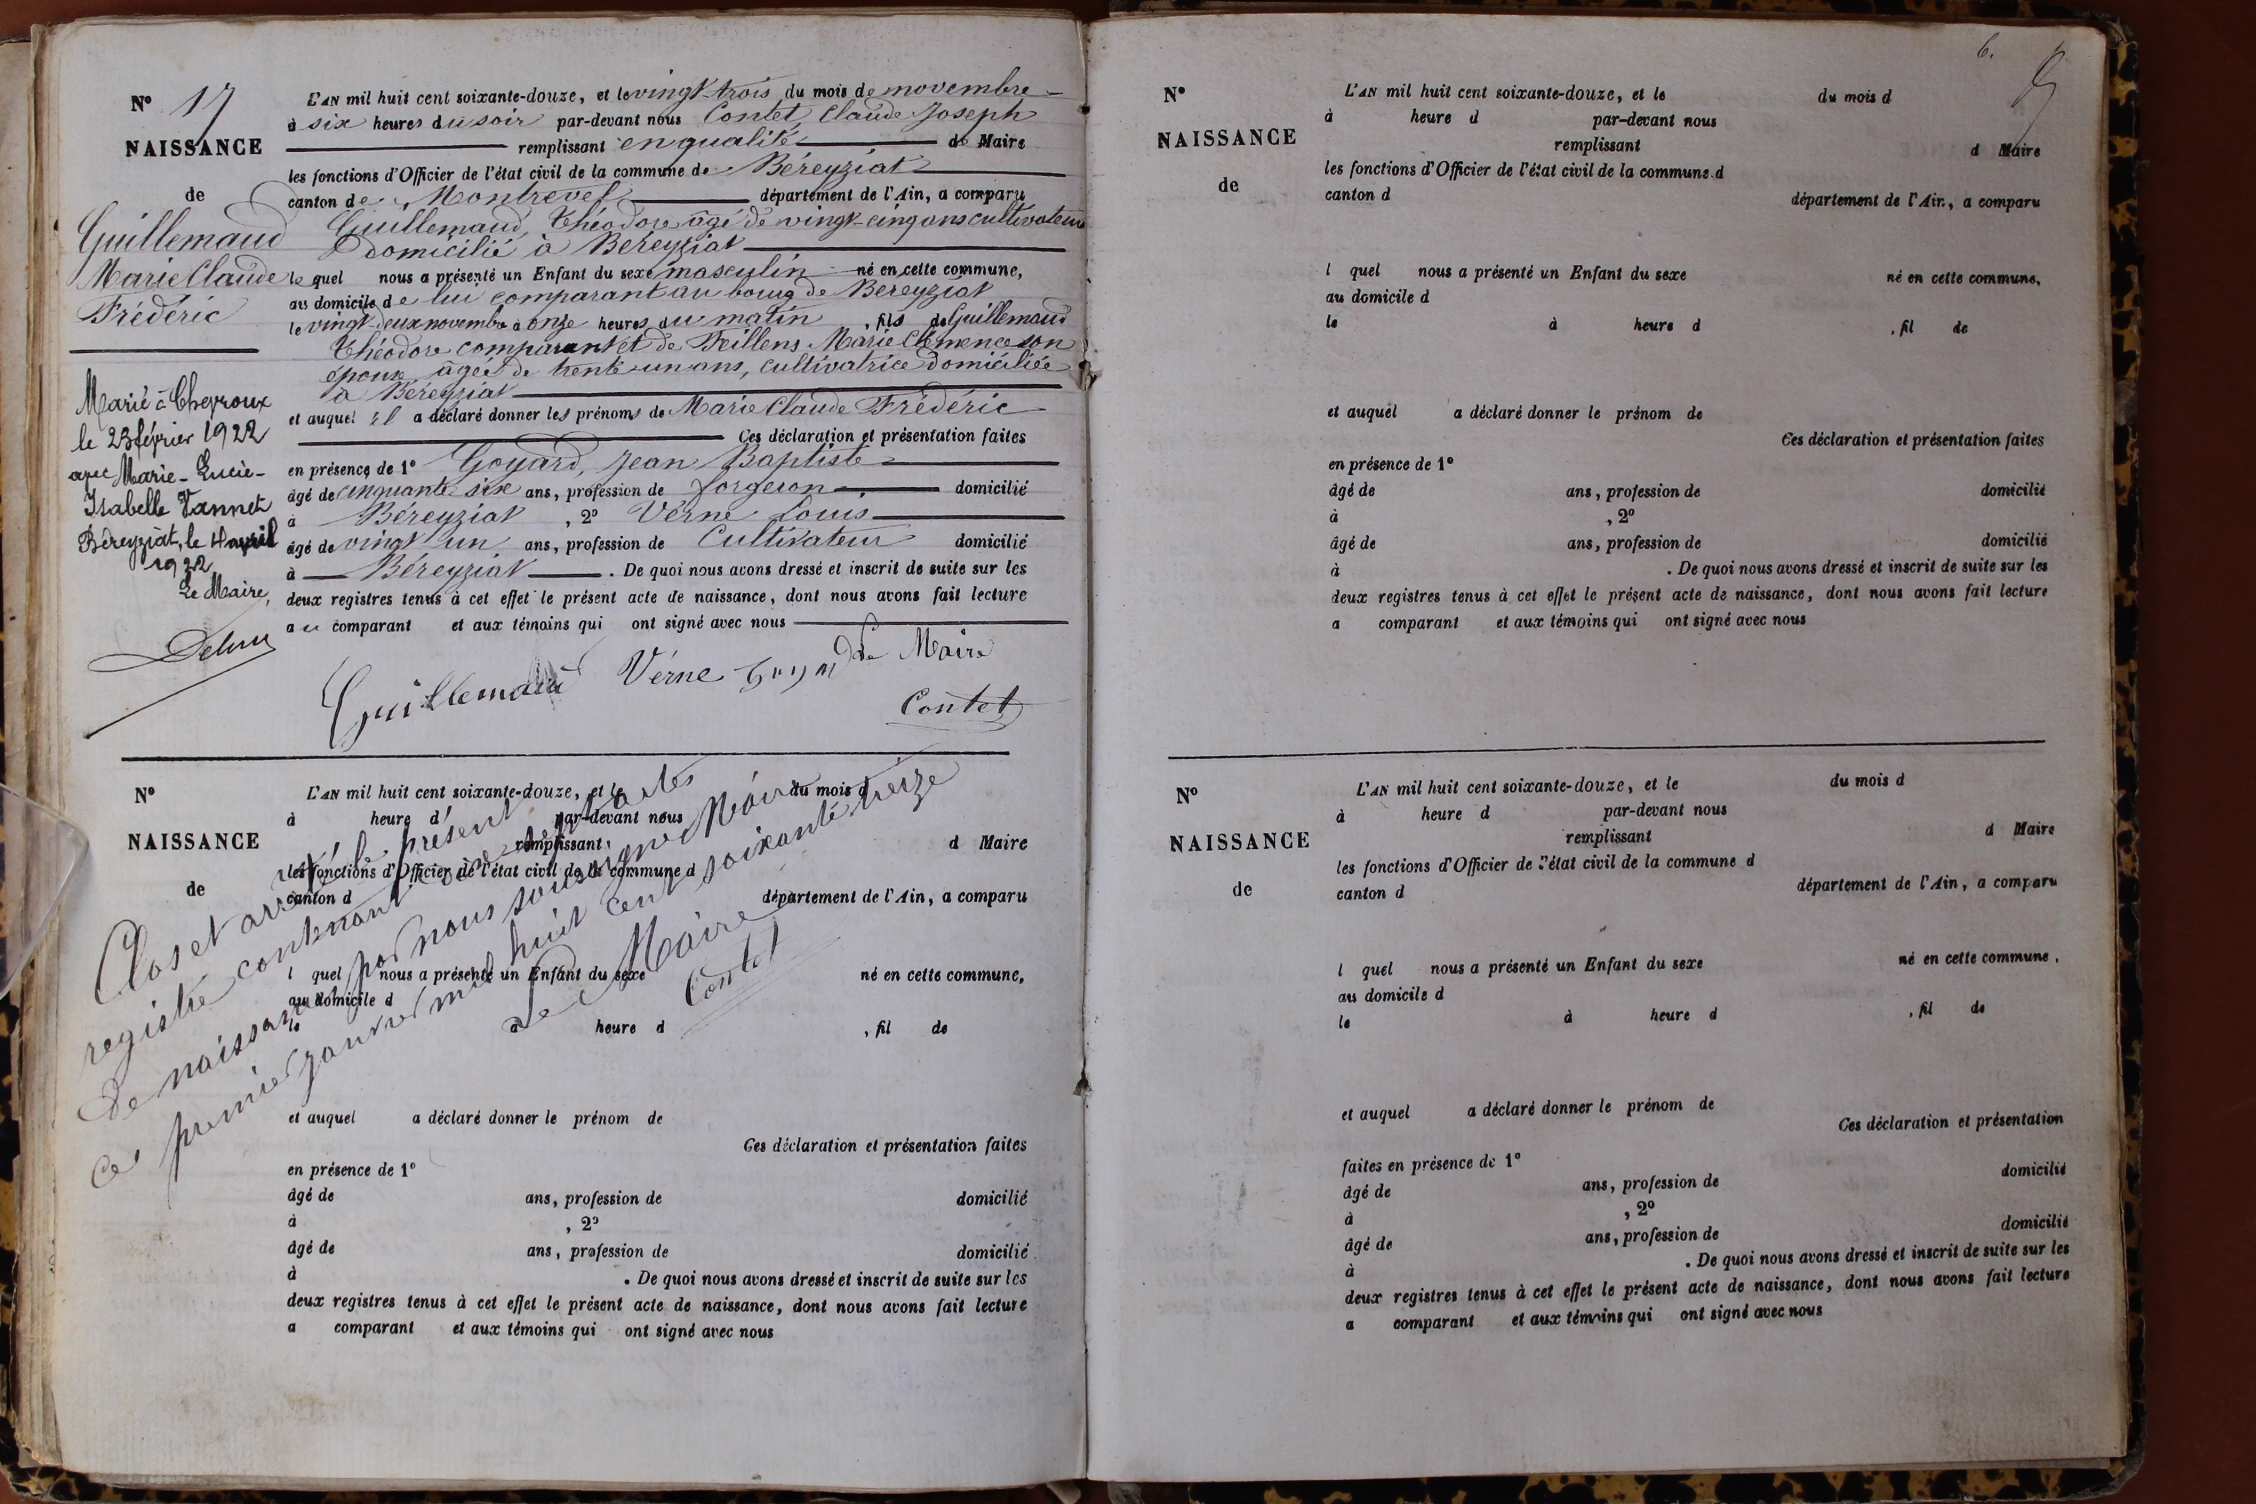 N° 17
NAISSANCE
de
Guillemaud
Marie Claude
Frédéric
L'AN mil huit cent soixante-douze, et le vingt-trois du mois de novembre
à six heures du soir par-devant nous Contet, Claude Joseph
remplissant en qualité de Maire
les fonctions d'Officier de l'état civil de la commune de Béreyziat
canton de Montrevel département de l'Ain, a comparu
Guillemaud, Théodore âgé de vingt-cinq ans cultivateur
domicilié à Béreyziat
lequel nous a présenté un Enfant du sexe masculin né en cette commune,
au domicile de lui comparant au bourg de Béreyziat
le vingt-deux novembre à onze heures du matin, fils de Guillemaud
Théodore comparant et de Feillens Marie Clémence son
épouse âgée de trente-un ans, cultivatrice domiciliée
à Béreyziat
et auquel il a déclaré donner les prénoms de Marie Claude Frédéric
Ces déclaration et présentation faites
en présence de 1° Goyard, Jean Baptiste
âgé de cinquante-six ans, profession de forgeron domicilié
à Béreyziat, 2° Verne Louis
âgé de vingt un ans, profession de Cultivateur domicilié
à Béreyziat. De quoi nous avons dressé et inscrit de suite sur les
deux registres tenus à cet effet le présent acte de naissance, dont nous avons fait lecture
au comparant et aux témoins qui ont signé avec nous
Marié à Cheyroux
le 23 février 1922
avec Marie-Lucie-
Isabelle Vannet
Béreyziat, le 4 avril
1922
Le Maire,
Guillemaud Verne Le Maire
Contet
N°
NAISSANCE
de
L'AN mil huit cent soixante-douze, et le du mois d
à heure d par-devant nous
remplissant d Maire
les fonctions d'Officier de l'état civil de la commune d
canton d département de l'Ain, a comparu
l quel nous a présenté un Enfant du sexe né en cette commune,
au domicile d
le à heure d , fil de
et auquel a déclaré donner le prénom de
Ces déclaration et présentation faites
en présence de 1°
âgé de ans, profession de domicilié
à , 2°
âgé de ans, profession de domicilié
à . De quoi nous avons dressé et inscrit de suite sur les
deux registres tenus à cet effet le présent acte de naissance, dont nous avons fait lecture
a comparant et aux témoins qui ont signé avec nous
Clos et arrêté le présent
registre contenant dix sept actes
de naissance par nous soussigné Maire
ce premier janvier mil huit cent soixante treize
Le Maire
Contet
6.
N°
NAISSANCE
de
L'AN mil huit cent soixante-douze, et le du mois d
à heure d par-devant nous
remplissant d Maire
les fonctions d'Officier de l'état civil de la commune d
canton d département de l'Ain, a comparu
l quel nous a présenté un Enfant du sexe né en cette commune,
au domicile d
le à heure d , fil de
et auquel a déclaré donner le prénom de
Ces déclaration et présentation faites
en présence de 1°
âgé de ans, profession de domicilié
à , 2°
âgé de ans, profession de domicilié
à . De quoi nous avons dressé et inscrit de suite sur les
deux registres tenus à cet effet le présent acte de naissance, dont nous avons fait lecture
a comparant et aux témoins qui ont signé avec nous
N°
NAISSANCE
de
L'AN mil huit cent soixante-douze, et le du mois d
à heure d par-devant nous
remplissant d Maire
les fonctions d'Officier de l'état civil de la commune d
canton d département de l'Ain, a comparu
l quel nous a présenté un Enfant du sexe né en cette commune,
au domicile d
le à heure d , fil de
et auquel a déclaré donner le prénom de
Ces déclaration et présentation
faites en présence de 1° domicilié
âgé de ans, profession de
à , 2° domicilié
âgé de ans, profession de
à . De quoi nous avons dressé et inscrit de suite sur les
deux registres tenus à cet effet le présent acte de naissance, dont nous avons fait lecture
a comparant et aux témoins qui ont signé avec nous